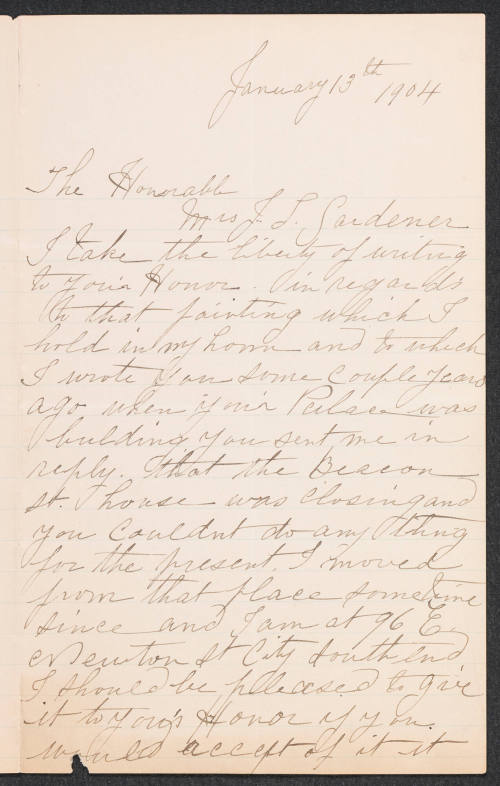 January 13th 1904
The Honorable
Mrs J. L. Gardener
I take the liberty of writing
to your Honor. in regards
to that painting which I
hold in my home and to which
I wrote you some couple years
ago when your Palace was
building you sent me in
reply. that the Beacon
st. house was closing and
you couldnt do any thing
for the present. I moved
from that place sometime
since and I am at 96 E.
Newton st City south end
I should be pleased to give
it to your Honor if you
would accept of it it